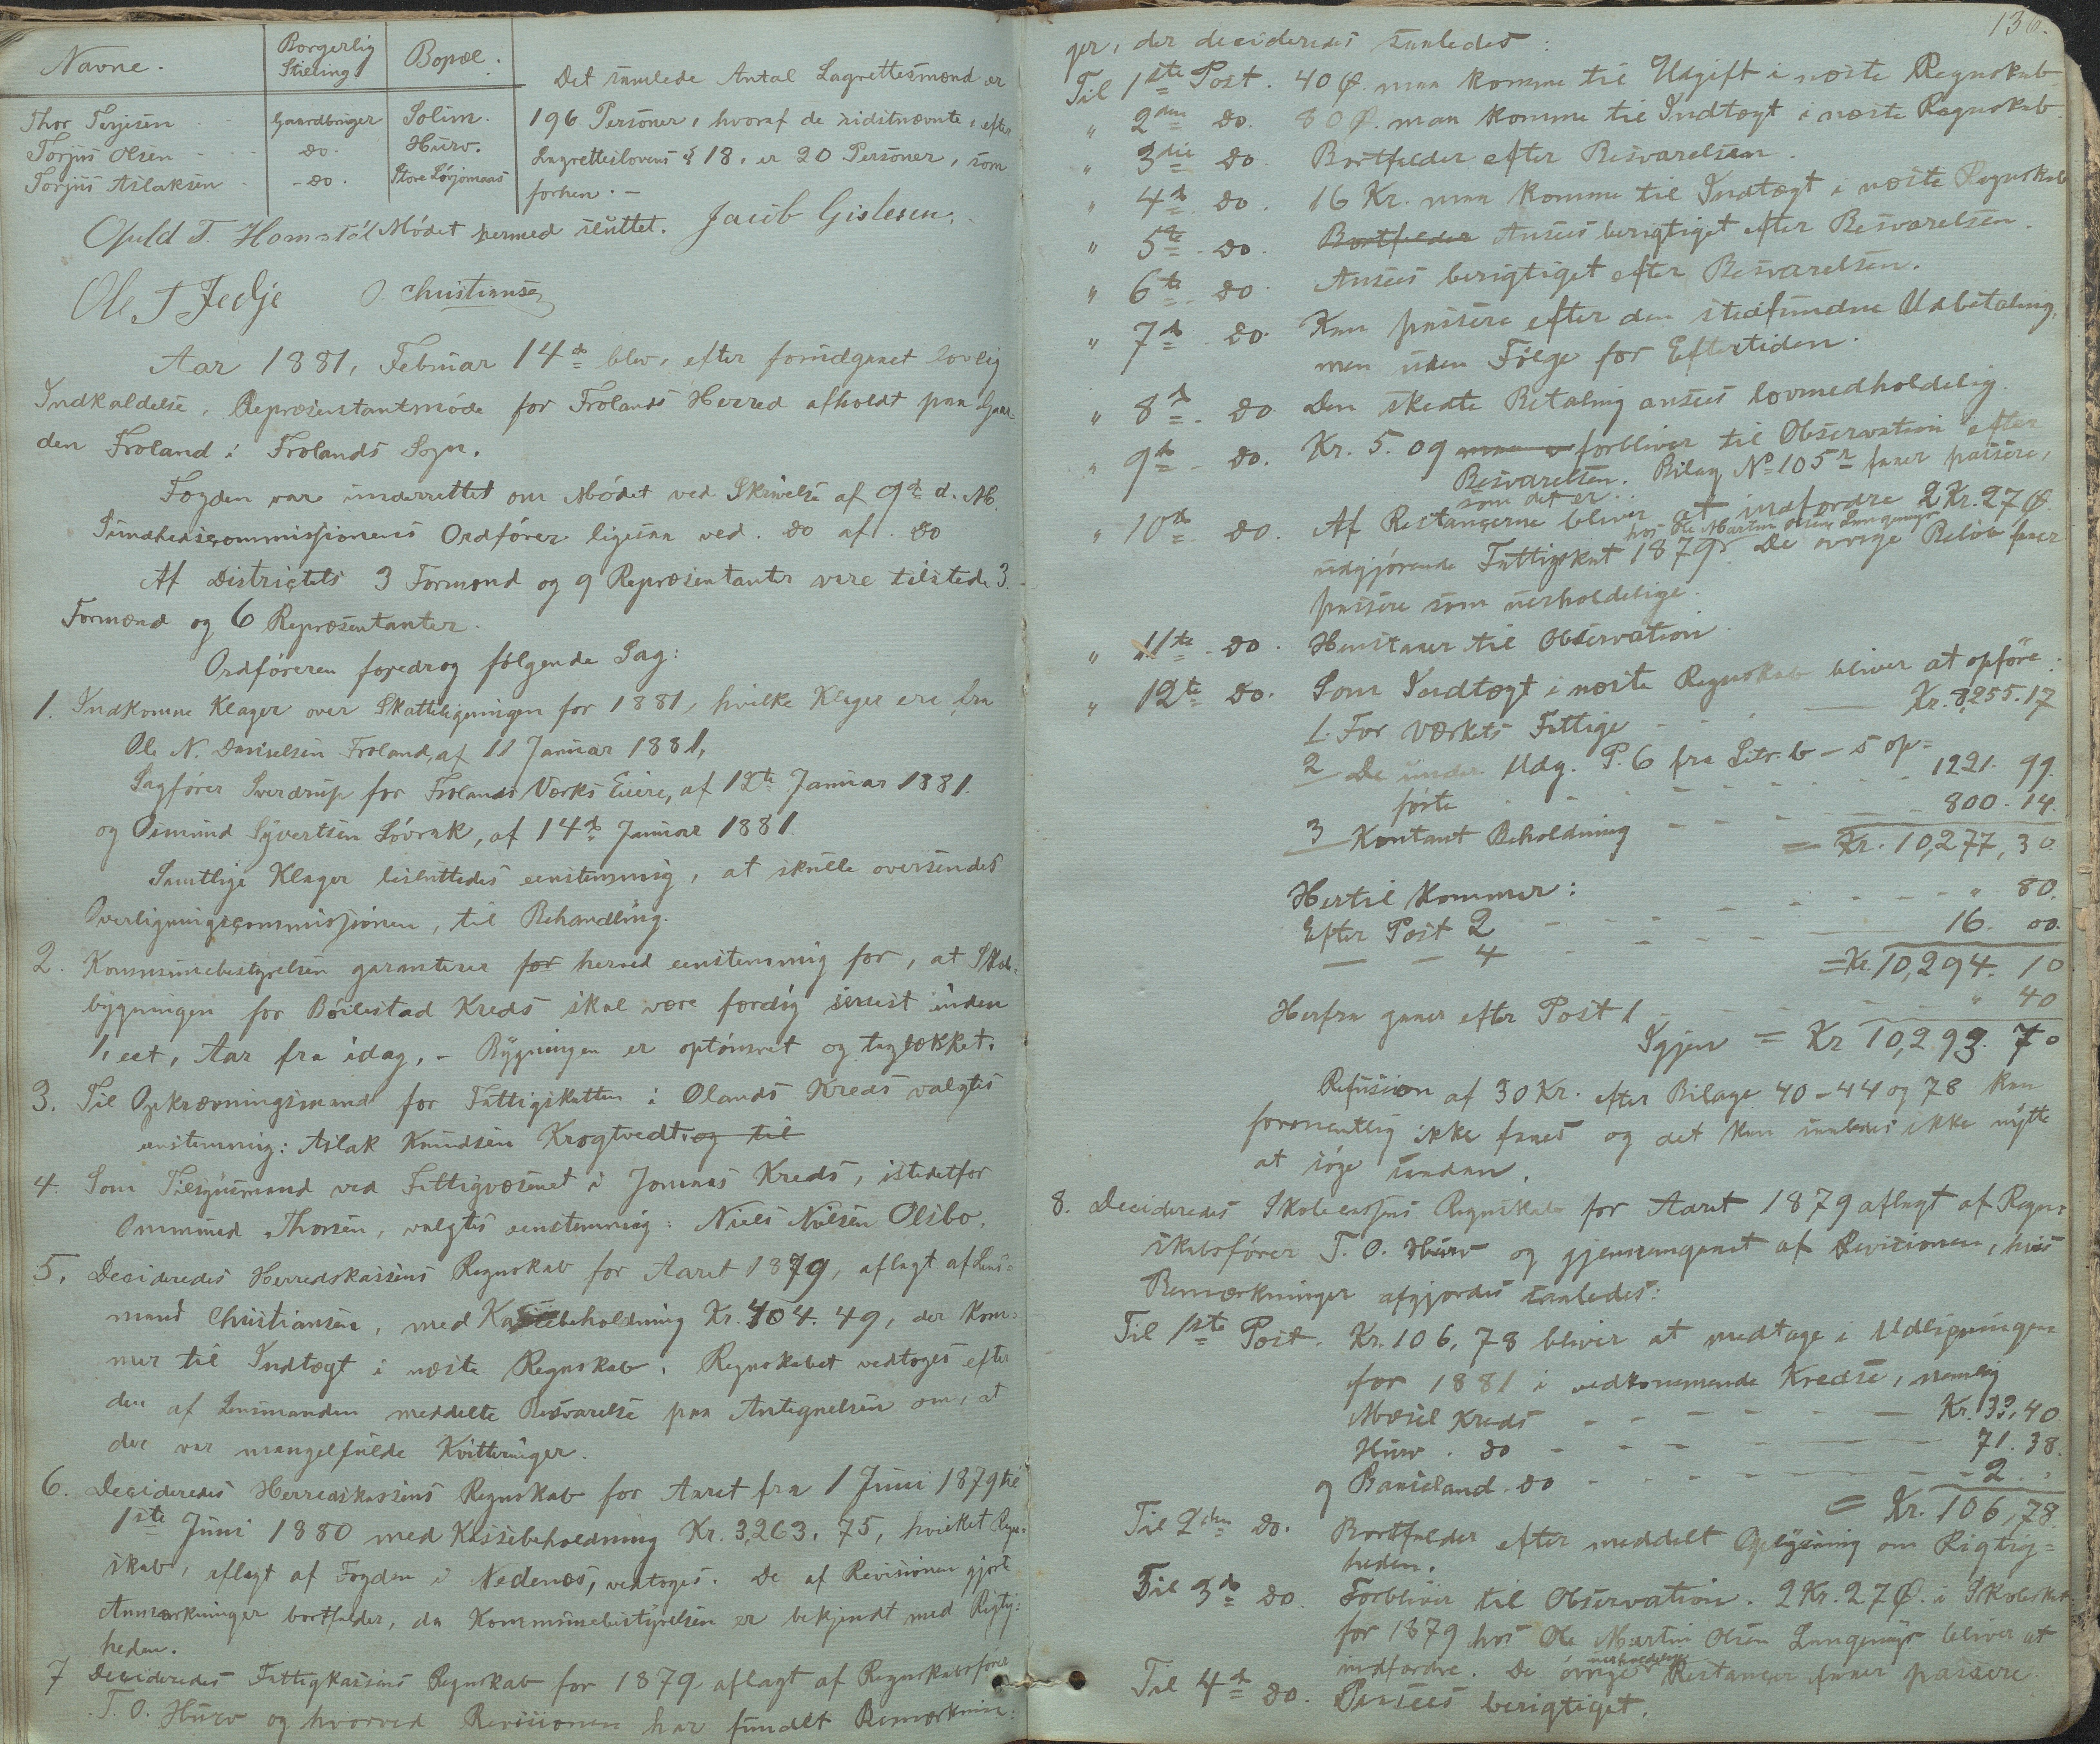 Navne. Borgerlig Stilling. Bopæl.
Thor Terjesen Gaardbruger Solim.
Torjus Olsen do. Hurv.
Torjus Aslaksen do. Store
Det samlede Antal Lagrettesmænd er
196 Personer, hvoraf de sidstnævnte, efter
Lagretteslovens § 18, er 20 Personer, som
forhen. —
Mødet hermed sluttet. Jacob Gislesen.
Opuld T. Homstøl
Ole T Jedje O. Christiansen
Aar 1881, Februar 14de blev, efter forudgaaet lovlig
Indkaldelse, Repræsentantmøde for Frolands Herred afholdt paa Gaar-
den Froland i Frolands Sogn.
Fogden var underrettet om Mødet ved Skrivelse af 9de d. M.
Sundhedscommissionens Ordfører ligesaa ved do af do
Af Districtets 3 Formænd og 9 Repræsentanter vare tilstede 3
Formænd og 6 Repræsentanter.
Ordføreren foredrog følgende Sag:
1. Indkomne Klager over Skatteligningen for 1881, hvilke Klager ere fra
Ole N. Danielsen Froland, af 11 Januar 1881,
Sagfører Sverdrup for Frolands Værks Eiere, af 12te Januar 1881.
og Osmund Syvertsen Løvrak, af 14de Januar 1881.
Samtlige Klager besluttedes eenstemmig, at skulle oversendes
Overligningscommissionen, til Behandling.
2. Kommunebestyrelsen garanterer for herved eenstemmig for, at Skole-
bygningen for Bøilestad Kreds skal være færdig senest inden
1, eet, Aar fra idag. — Bygningen er optømret og taglækket.
3. Til Opkrævningsmand for Fattigskatten i Ølands Kreds valgtes
eenstemmig: Aslak Knudsen Krogtvedt. og til
4. Som Tilsynsmand ved Fattigvæsenet i Jomaas Kreds, istedetfor
Ommund Thorsen, valgtes eenstemmig: Niels Nilsen Olsbo.
5. Decideredes Herredskassens Regnskab for Aaret 1879, aflagt af Lens-
mand Christiansen, med Kassebeholdning Kr. 404.49, der kom-
mer til Indtægt i næste Regnskab. Regnskabet vedtoges efter
den af Lensmanden meddelte Besvarelse paa Antegnelsen om, at
der var mangelfulde Kvitteringer.
6. Decideredes Herredskassens Regnskab for Aaret fra 1 Juni 1879 til
1ste Juni 1880 med Kassebeholdning Kr. 3,263.75, hvilket Regn-
skab, aflagt af Fogden i Nedenæs, vedtoges. De af Revisionen gjort
Anmærkninger bortfalder, da Kommunebestyrelsen er bekjendt med Rigtig-
heden.
7 Decideredes Fattigkassens Regnskab for 1879 aflagt af Regnskabsfører
T. O. Hurv og hvorved Revisionen har fundet Bemærknin-
136.
ger, der decideredes saaledes:
Til 1ste Post. 40 Ø. maa komme til Udgift i næste Regnskab
" 2den do. 80 Ø. maa komme til Indtægt i næste Regnskab.
" 3die do. Bortfalder efter Besvarelsen.
" 4de do. 16 Kr. maa komme til Indtægt i næste Regnskab
" 5te do. Bortfalder Ansees berigtiget efter Besvarelsen.
" 6te do. Ansees berigtiget efter Besvarelsen.
" 7de do. Kan passere efter den stedfundne Udbetaling,
men uden Følge for Eftertiden.
" 8de do. Den skedte Betaling ansees lovmedholdelig.
" 9de do. Kr. 5.09 forbliver til Observation efter
Besvarelsen. Bilag No 105 faaer passere,
som det er.
" 10de do. Af Restancerne bliver at indfordre 2 Kr. 27 Ø.
hos Ole Martin Olsen Langemyr
udgjørende Fattigskat 1879. De øvrige Beløb faaer
passere som uerholdelige.
" 11te do. Henstaaer til Observation.
" 12te do. Som Indtægt i næste Regnskab bliver at opføre:
1. For Værkets Fattige Kr. 8,255.17
2 De under Udg. P. 6 fra Litr. b — s op-
førte 1221.99.
3 Kontant Beholdning 800.14.
= Kr. 10,277,30
Hertil kommer:
Efter Post 2 " 80.
— — 4 16.00.
= Kr. 10,294.10
Herfra gaaer efter Post 1 " 40
Igjen = Kr 10,293.70
Refusion af 30 Kr. efter Bilage 40-44 og 78 kan
formentlig ikke faaes og det kan saaledes ikke nytte
at søge saadan.
8. Decideredes Skolecassens Regnskab for Aaret 1879 aflagt af Regn-
skabsfører T. O. Hurv og gjennemgaaet af Revisionen, hvis
Bemærkninger afgjordes saaledes:
Til 1ste Post. Kr. 106,78 bliver at medtage i Udligningen
for 1881 i vedkommende Kredse, nemlig
Mæsel Kreds Kr. 33,40
Hurv do 71.38.
og Bauseland do 2. "
= Kr. 106,78.
Til 2den do. Bortfalder efter meddelt Oplysning om Rigtig-
heden.
Til 3de do. Forbliver til Observation. 2 Kr. 27 Ø. i Skoleskat
for 1879 hos Ole Martin Olsen Langemyr bliver at
indfordre. De øvrige uerholdelige Restancer faaer passere.
Til 4de do. Ansees berigtiget.